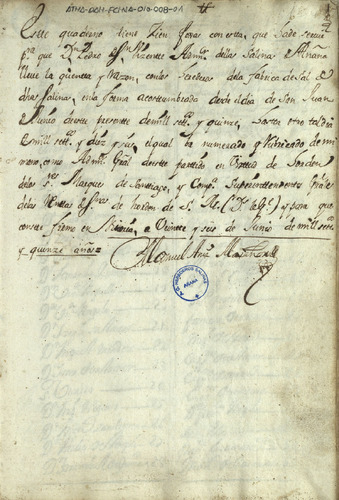 ATHA-DAH-FCINA-010-008-01
Este quaderno tiene zien foxas con esta, que ha de servir
para que Dn Pedro de Vizente Admor. de las Salinas de Añana
lleve la quenta y Razon, con los erederos de la fabrica de Sal de
dhas Salinas, en la forma acostumbrada desde el dia de Son Juan
de Junio de este presente de mill setts. y quinze, hasta otro tal dia
de mill setts. y diez y seis, el qual ba numerado y Rubricado de mi
mano, como Admor. Gral de este partido en Virtud de orden
de los Sres. Marques de Santiago, y Compa. Superintendentes Grales
de las Rentas de Salinas de horden de S. Mg. (Dios le Ge.) y para que
conste firmo en Vitoria, a Veinte y seis de Junio de mill setts
y quinze años=
Manuel Anto. Martin
A.D. HEREDEROS SALINAS
AÑANA